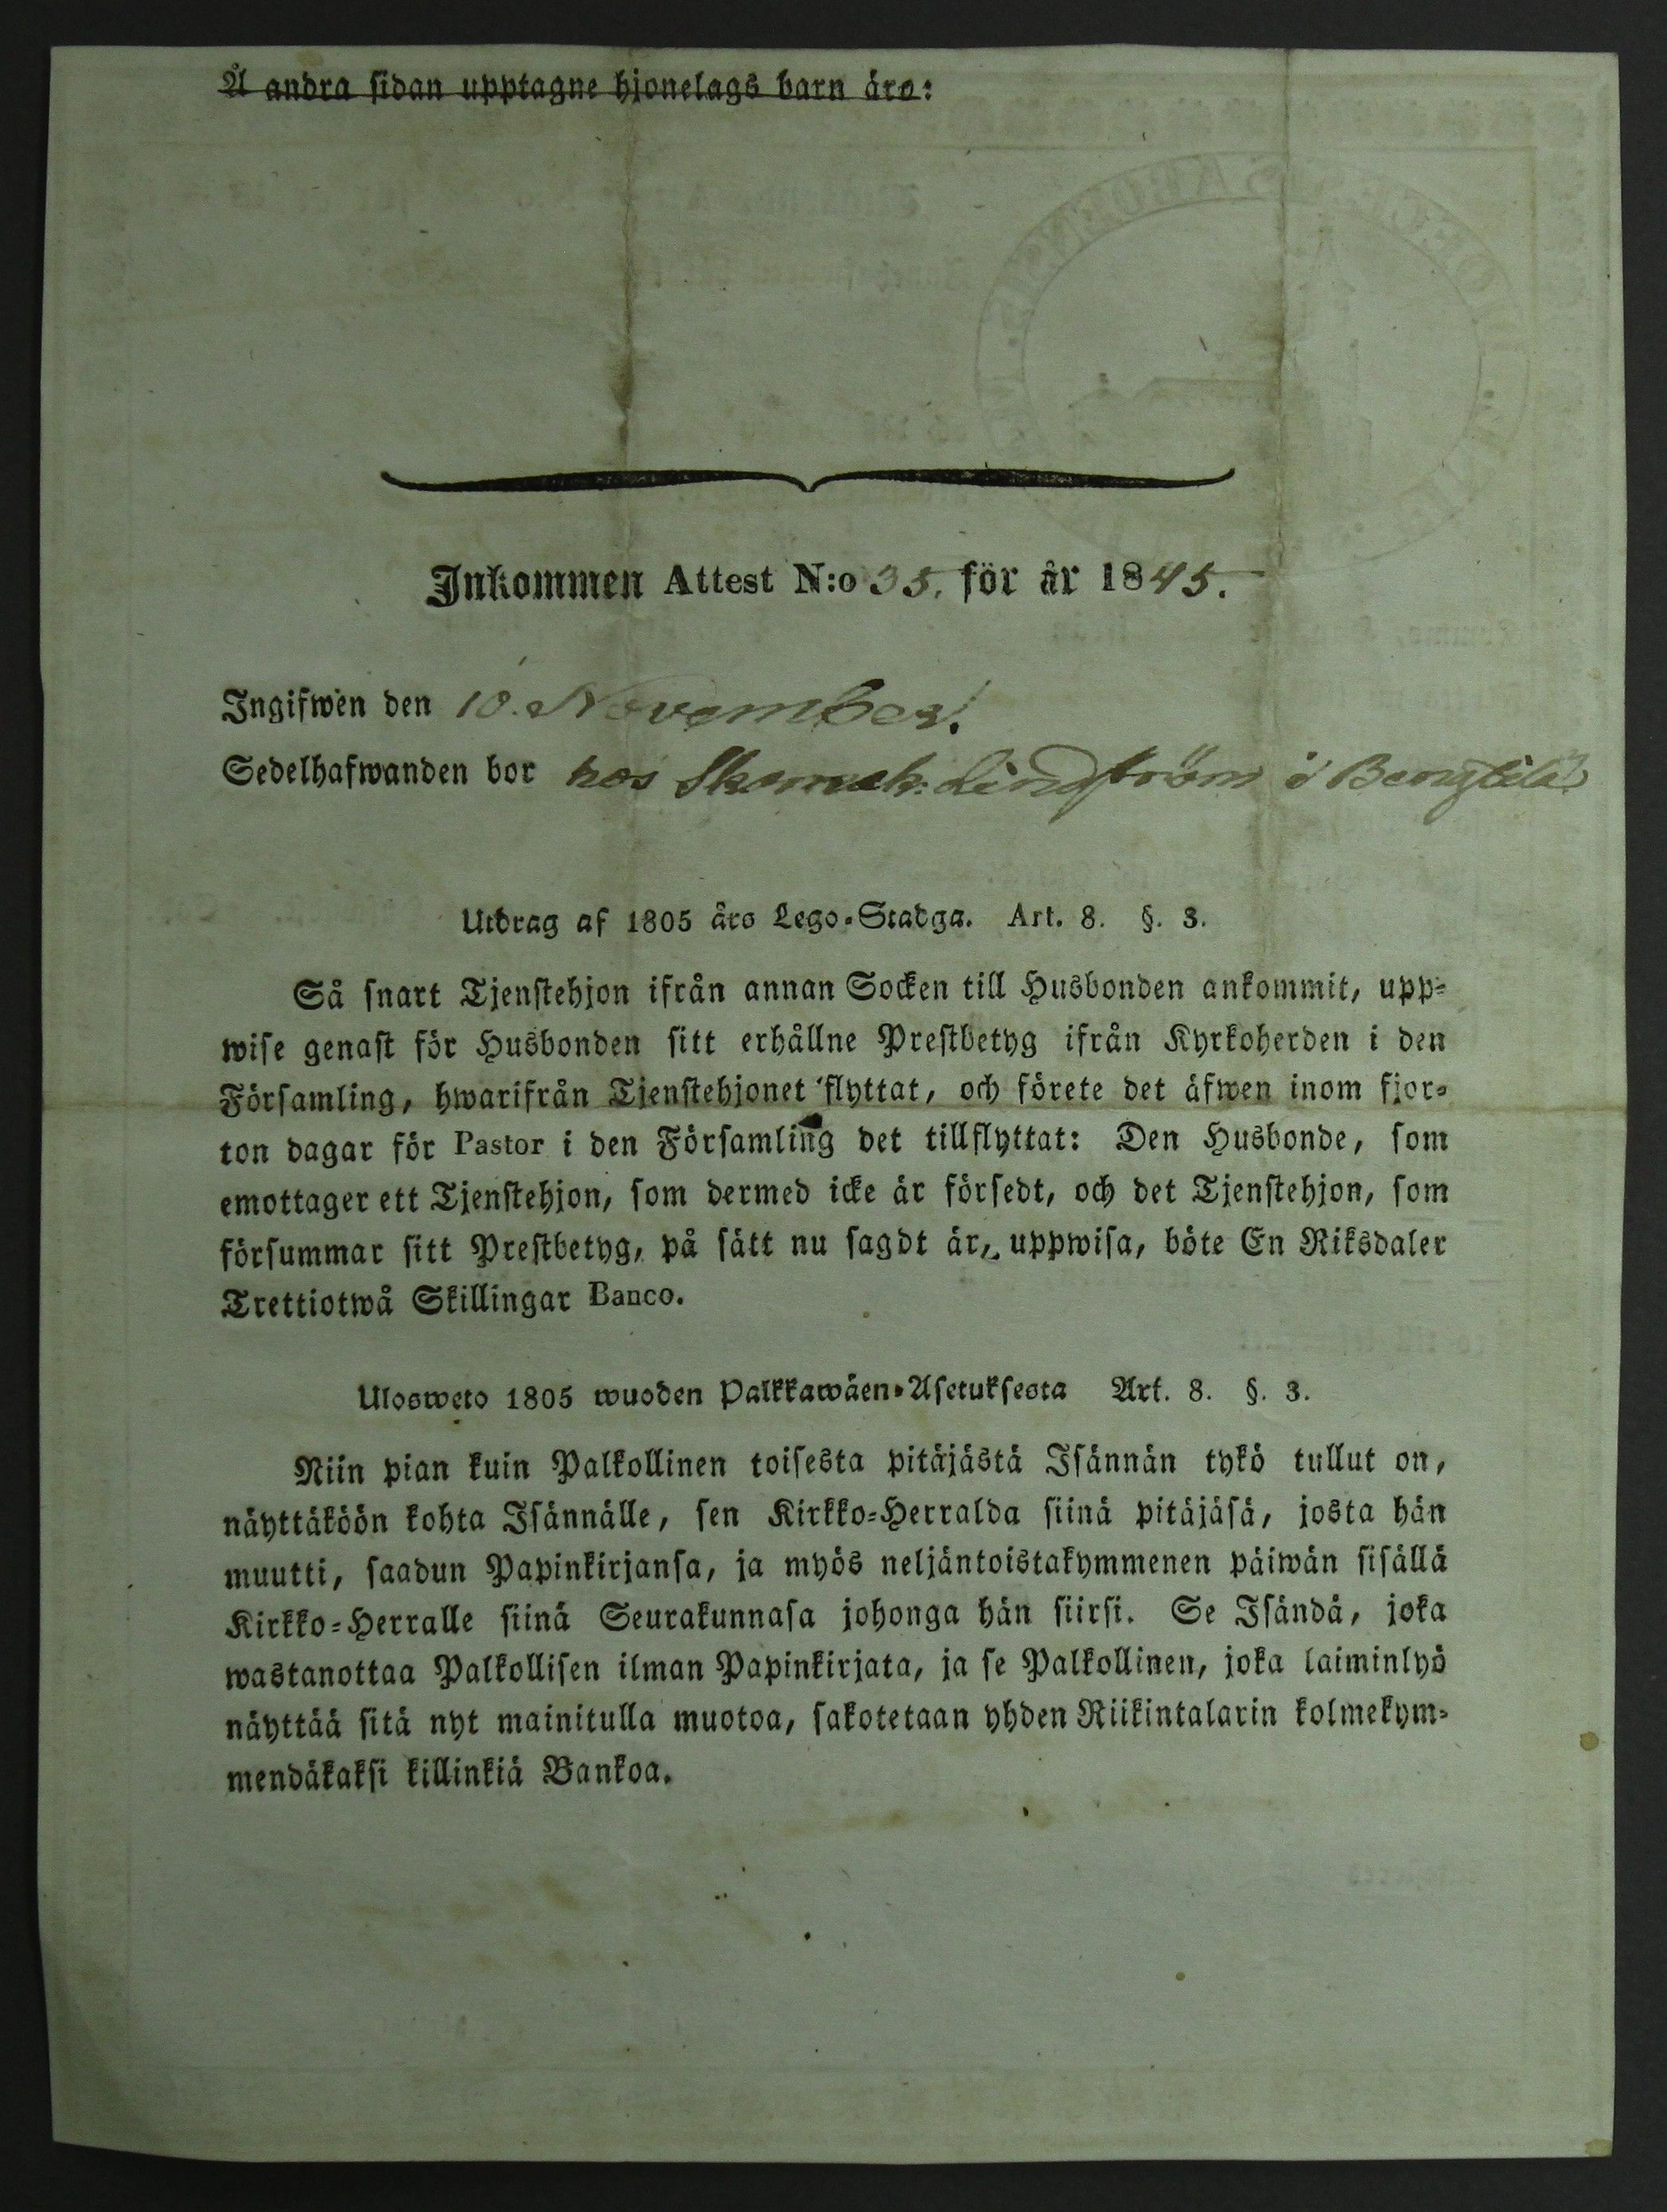 Å andra sidan upptagne hjonelags barn äro:
Inkommen Attest N:o 35. för år 1845.
Ingifwen den 10. November.
Sedelhafwanden bor hos Skomak: Lindström i Bengtilä
Utdrag af 1805 års Lego-Stadga. Art. 8. §. 3.
Så snart Tjenstehjon ifrån annan Socken till Husbonden ankommit, upp-
wise genast för Husbonden sitt erhållne Prestbetyg ifrån Kyrkoherden i den
Församling, hwarifrån Tjenstehjonet flyttat, och förete det äfwen inom fjor-
ton dagar för Pastor i den Församling det tillflyttat: Den Husbonde, som
emottager ett Tjenstehjon, som dermed icke är försedt, och det Tjenstehjon, som
försummar sitt Prestbetyg, på sätt nu sagdt är, uppwisa, böte En Riksdaler
Trettiotwå Skillingar Banco.
Ulosweto 1805 wuoden Palkkawäen-Asetuksesta Art. 8. §. 3.
Niin pian kuin Palkollinen toisesta pitäjästä Isännän tykö tullut on,
näyttäköön kohta Isännälle, sen Kirkko-Herralda siinä pitäjäsä, josta hän
muutti, saadun Papinkirjansa, ja myös neljäntoistakymmenen päiwän sisällä
Kirkko-Herralle siinä Seurakunnasa johonga hän siirsi. Se Isändä, joka
wastanottaa Palkollisen ilman Papinkirjata, ja se Palkollinen, joka laiminlyö
näyttää sitä nyt mainitulla muotoa, sakotetaan yhden Riikintalarin kolmekym-
mendäkaksi killinkiä Bankoa.